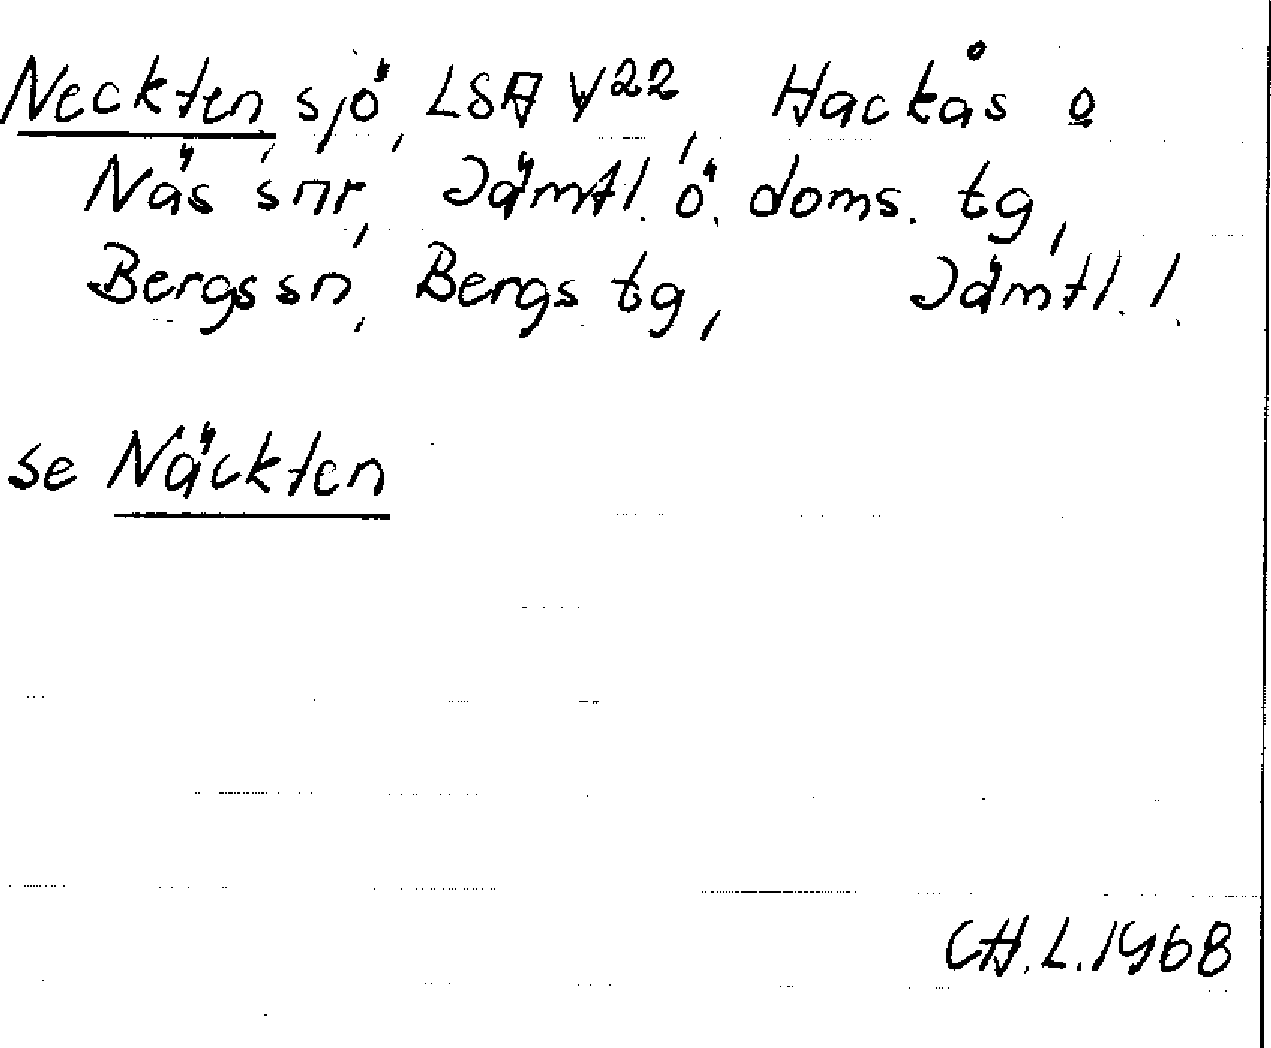 Neckten, sjö, LSA V22, Hackås o
Näs snr, Jämtl. ö. doms. tg,
Bergs sn, Bergs tg, Jämtl. l.
se Näckten
CH.L. 1968